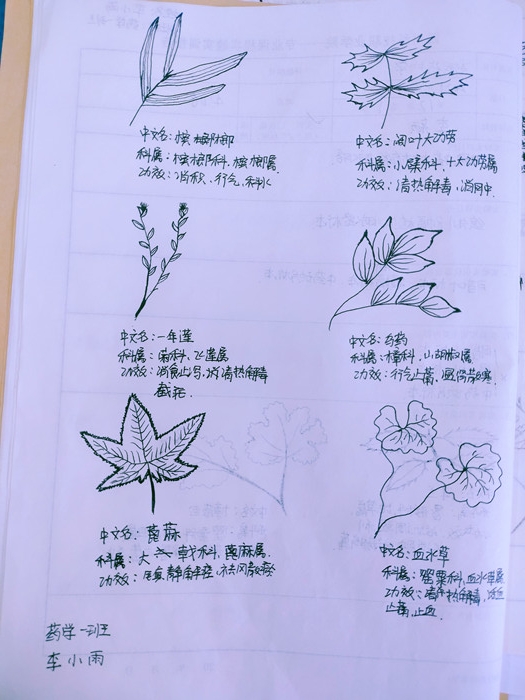 中文名：槟榔
科属：槟榔科、槟榔属
功效：消积、行气、利水
中文名：阔叶十大功劳
科属：小檗科、十大功劳属
功效：清热解毒、消肿
中文名：一年蓬
科属：菊科、飞蓬属
功效：消食止泻、清热解毒
截疟
中文名：乌药
科属：樟科、山胡椒属
功效：行气止痛、温肾散寒
中文名：蓖麻
科属：大戟科、蓖麻属
功效：镇静解痉、祛风散瘀
中文名：血水草
科属：罂粟科、血水草属
功效：清热解毒、活血
止痛、止血
药学一班
李小雨